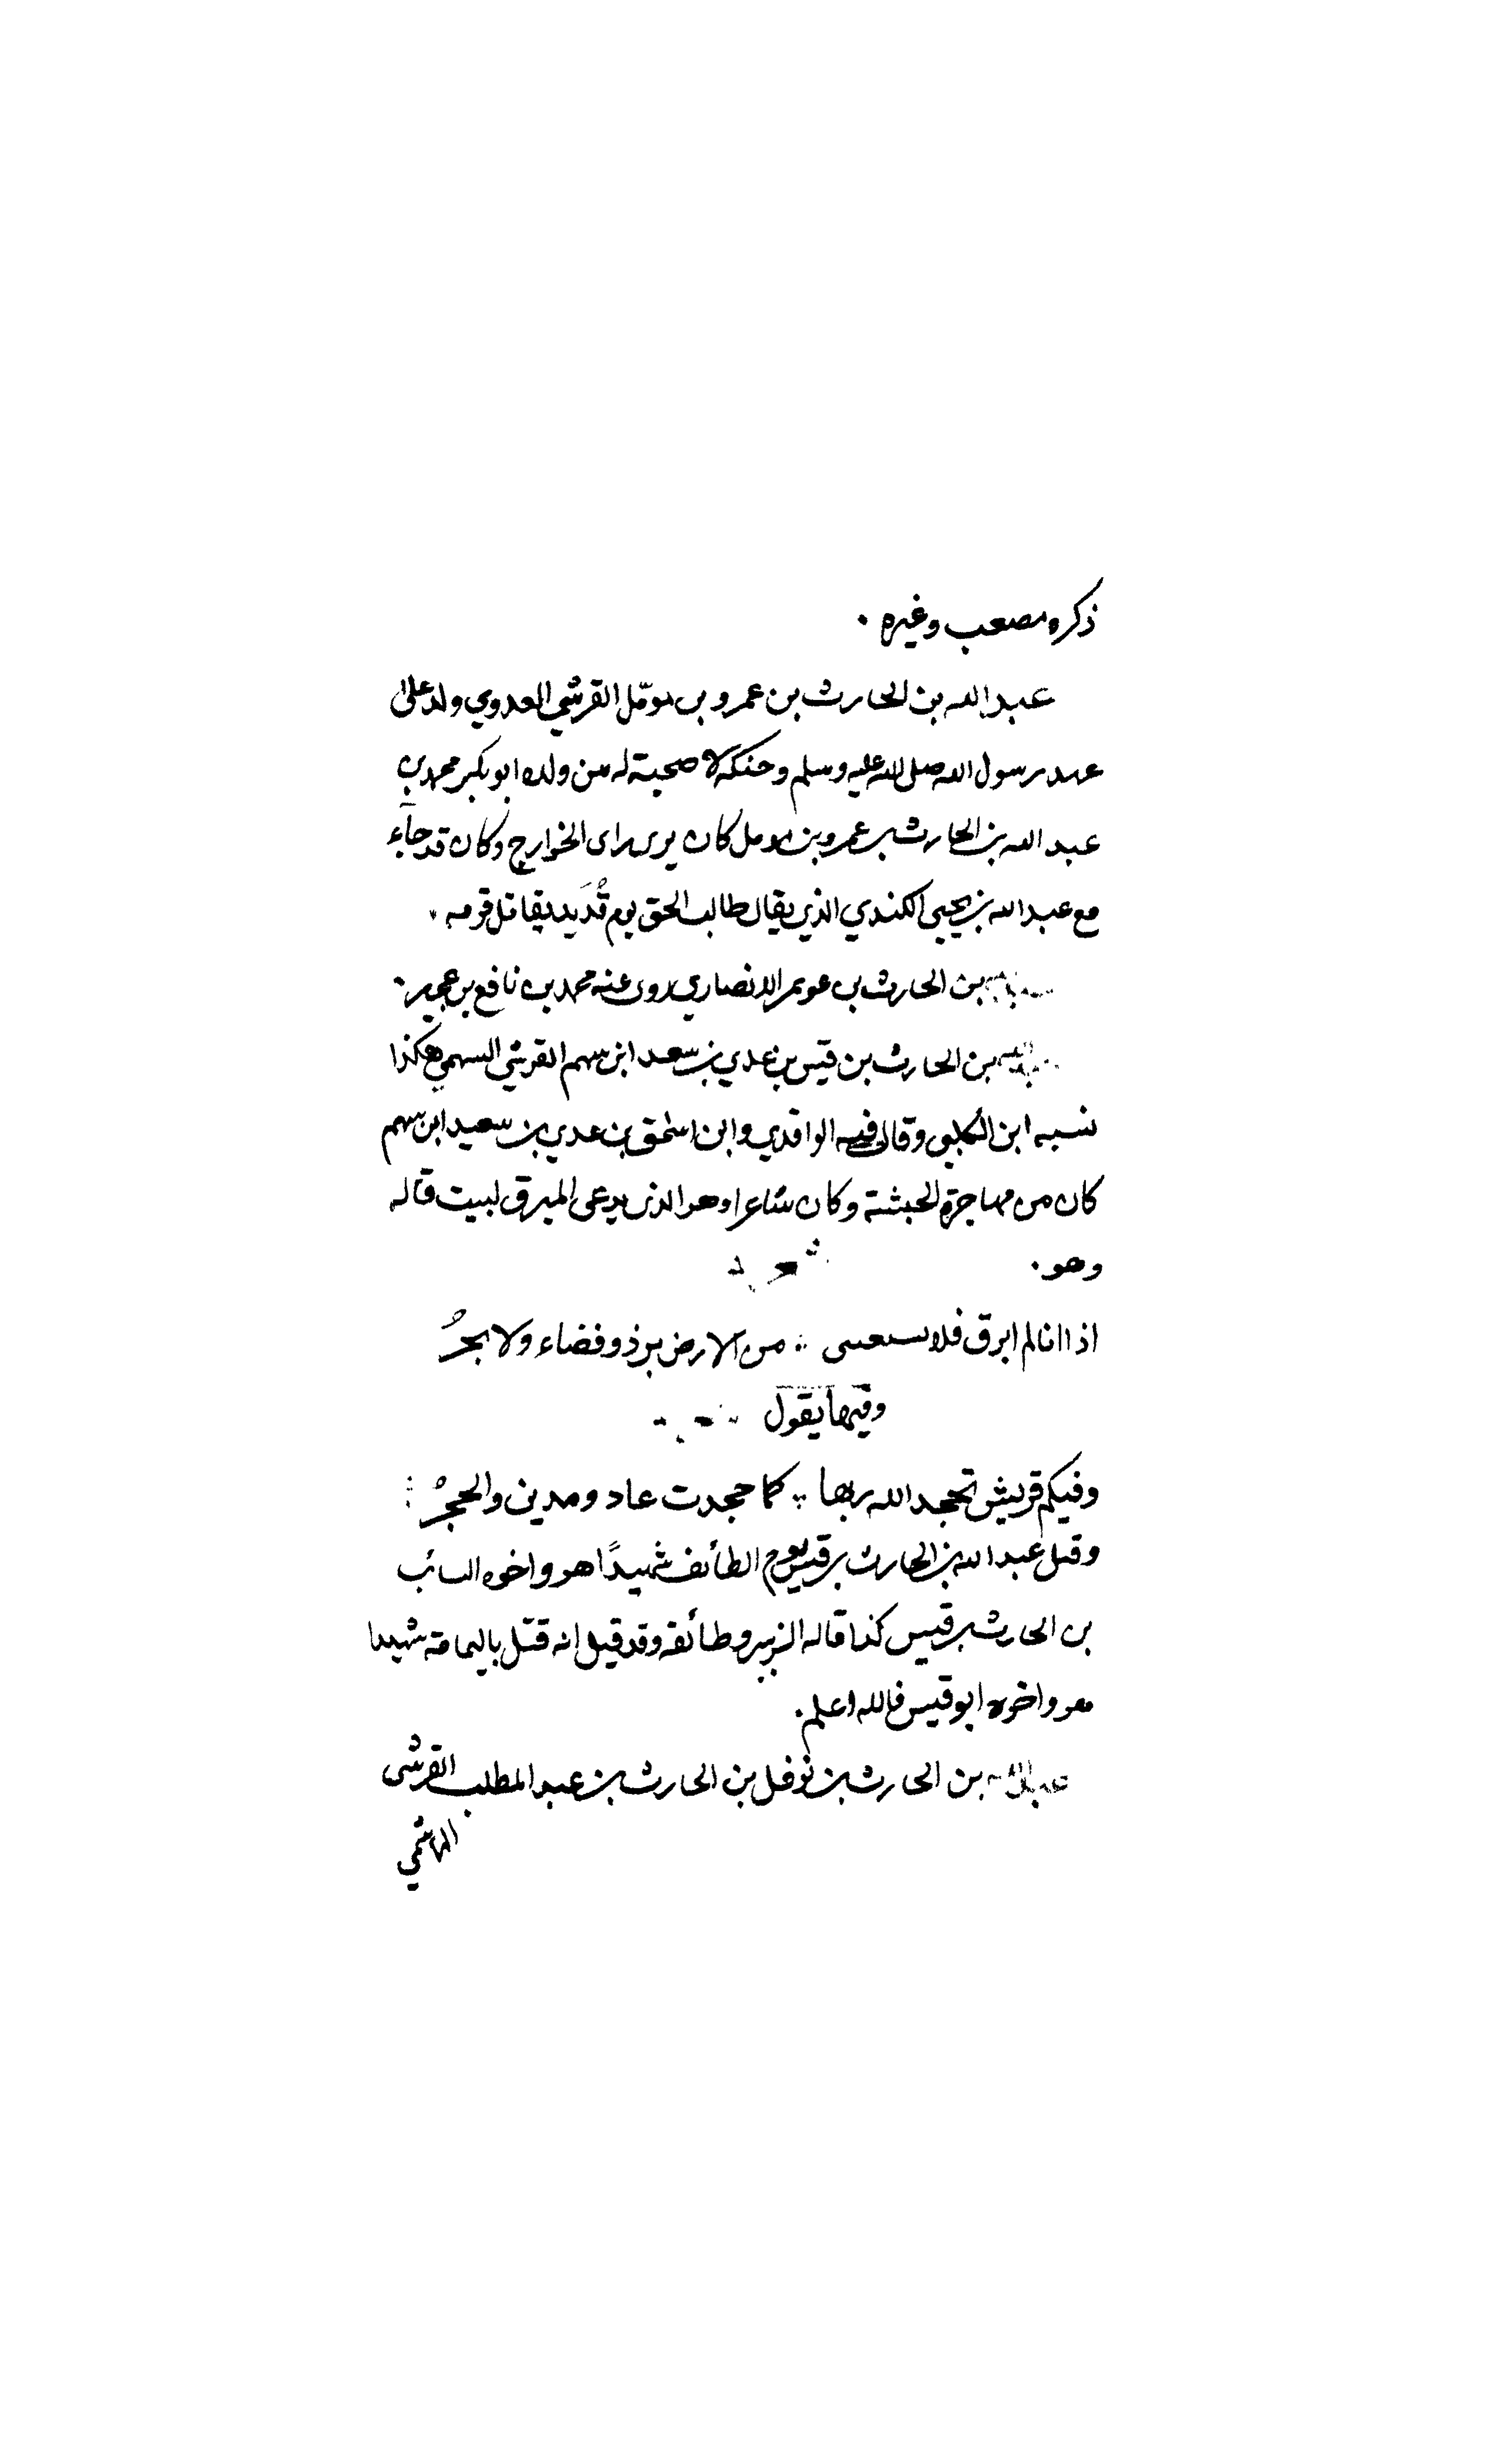 ذكره مصعب وغيره .
عبد الله بن الحارث بن عمرو بن مومّل القرشي العدوي ولد على
عهد رسول الله صلى الله عليه وسلم وحنكه لا صحبة له من ولده ابو بكر محمد بن
عبد الله بن الحارث بن عمرو بن مومل كان يرى راى الخوارج وكان قد جآء
مع عبد الله بن يحيى الكندي الذي يقال طالب الحق يوم قُدَيد يقاتل قومه .
بن الحارث بن عويمر الانصاري روى عنه محمد بن نافع بن عجير .
عبد الله بن الحارث بن قيس بن عدي بن سعد ابن سهم القرشي السهمي هكذا
نسبه ابن الكلبي وقال فيه الواقدي وابن اسحق بن عدي بن سعيد ابن سهم
كان من مهاجرة الحبشة وكان شاعرا وهو الذى يدعى المبرق لبيت قاله
وهو .
اذا انا لم ابرق فلا يسعننى ∴ من الارض بر ذو فضاء ولا بحرُ
وفيها يقول
وفيكم قريش تجحد الله ربها ∴ كما جحدت عاد ومدين والحجرُ
وقتل عبد الله بن الحارث بن قيس يوم الطائف شهيدًا هو واخوه السائب
بن الحارث بن قيس كذا قاله الزبير وطائفة وقد قيل انه قتل باليمامة شهيدا
هو واخوه ابو قيس فالله اعلم .
عبد الله بن الحارث بن نوفل بن الحارث بن عبد المطلب القرشى
الهاشمي